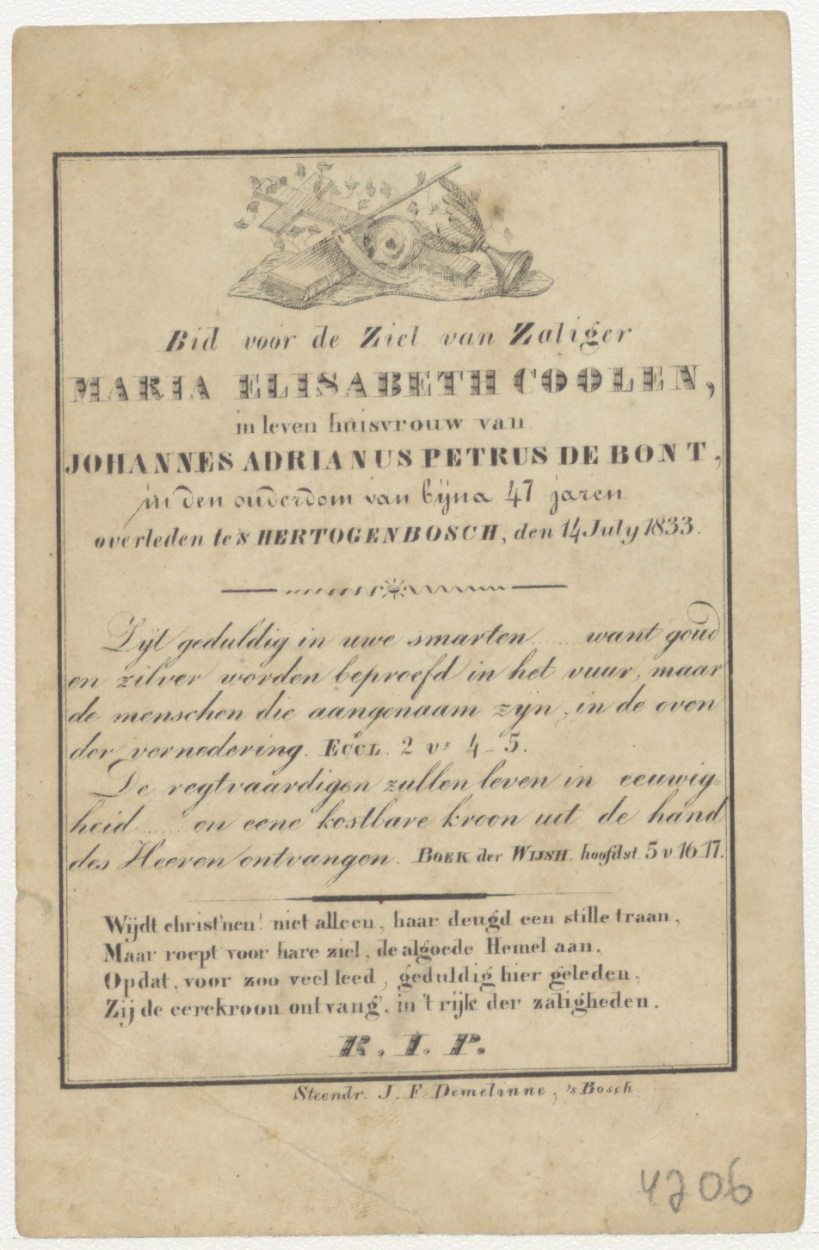 Bid voor de Ziel van Zaliger
MARIA ELISABETH COOLEN,
in leven huisvrouw van
JOHANNES ADRIANUS PETRUS DE BONT,
in den ouderdom van bijna 47 jaren
overleden te 's HERTOGENBOSCH, den 14 July 1833.
Zijt geduldig in uwe smarten .... want goud
en zilver worden beproefd in het vuur, maar
de menschen die aangenaam zijn, in de oven
der vernedering. ECCL. 2 vs 4-5.
De regtvaardigen zullen leven in eeuwig-
heid .... en eene kostbare kroon uit de hand
des Heeren ontvangen. BOEK der WIJSH. hoofdst. 5 v 16 17.
Wijdt christ'nen! niet alleen, haar deugd een stille traan,
Maar roept voor hare ziel, de algoede Hemel aan,
Opdat, voor zoo veel leed, geduldig hier geleden,
Zij de eerekroon ontvang', in 't rijk der zaligheden.
R. I. P.
Steendr. J. F. Demelinne, 's Bosch.
4206